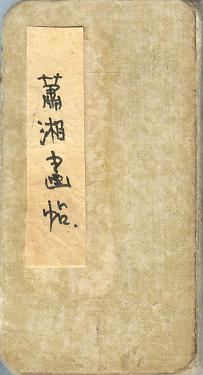 蕭湘畫帖.